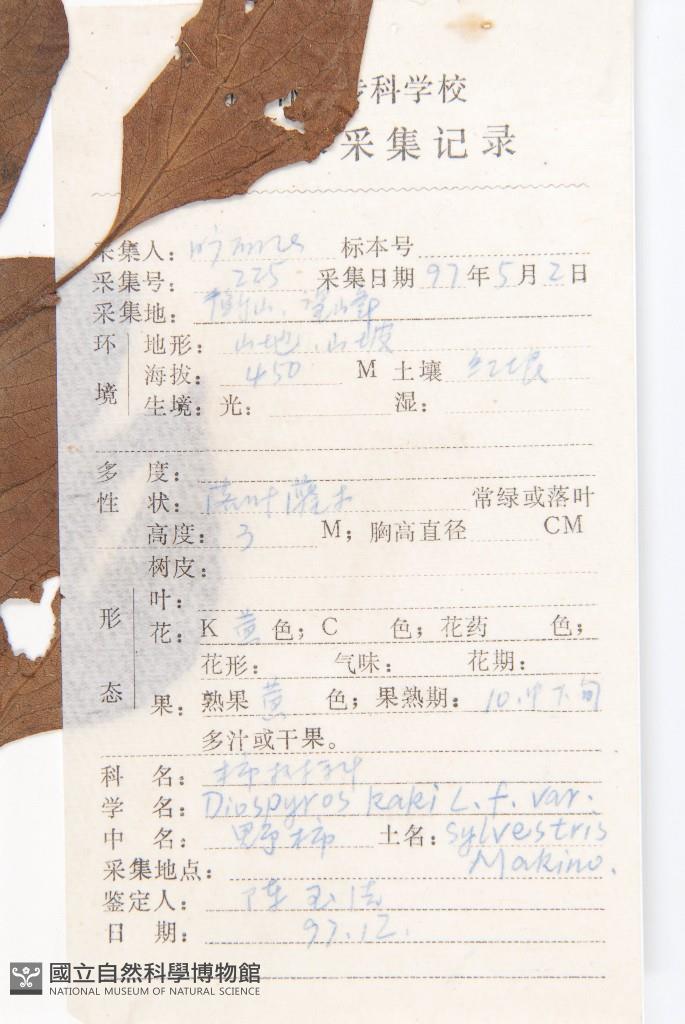 专科学校
采集记录
采集人： 标本号
采集号： 225 采集日期 97 年 5 月 2 日
采集地： 衡山、
环 地形： 山地、山坡
海拔： 450 M 土壤 红壤
境 生境：光： 湿：
多 度：
性 状： 落叶灌木 常绿或落叶
高度： 3 M；胸高直径 CM
树皮：
形 叶：
花：K 黄 色；C 色；花药 色；
花形： 气味： 花期：
态 果：熟果 黄 色；果熟期： 10.中下旬
多汁或干果。
科 名： 柿树科
学 名： Diospyros kaki L.f. var.
中 名： 野柿 土名： sylvestris
采集地点： Makino.
鉴定人： 陈玉洁
日 期： 97.12.
國立自然科學博物館
NATIONAL MUSEUM OF NATURAL SCIENCE